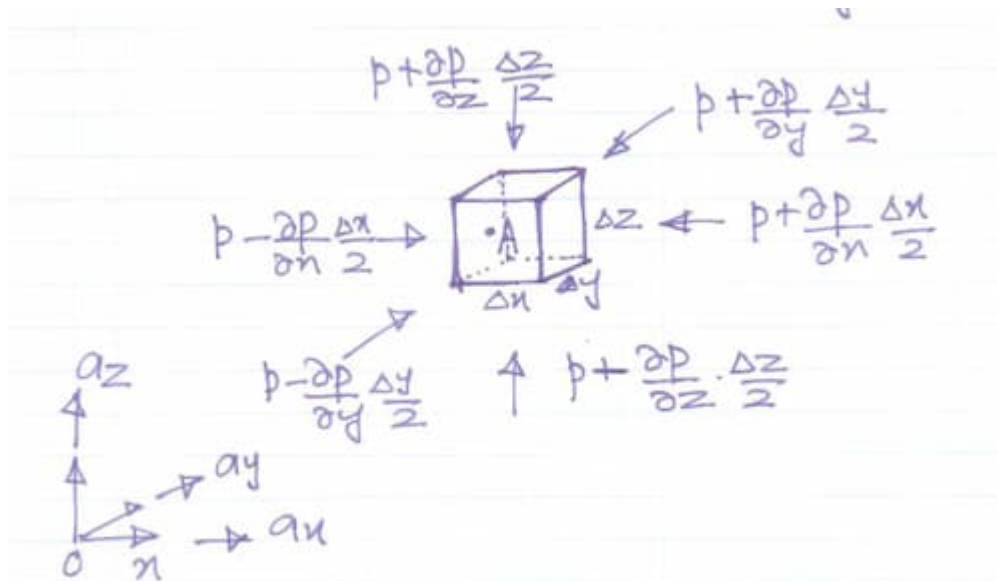 p+∂p/∂z Δz/2
p+∂p/∂y Δy/2
p-∂p/∂x Δx/2
A
Δz
p+∂p/∂x Δx/2
Δx
Δy
p-∂p/∂y Δy/2
p+∂p/∂z.Δz/2
az
ay
ax
0
x